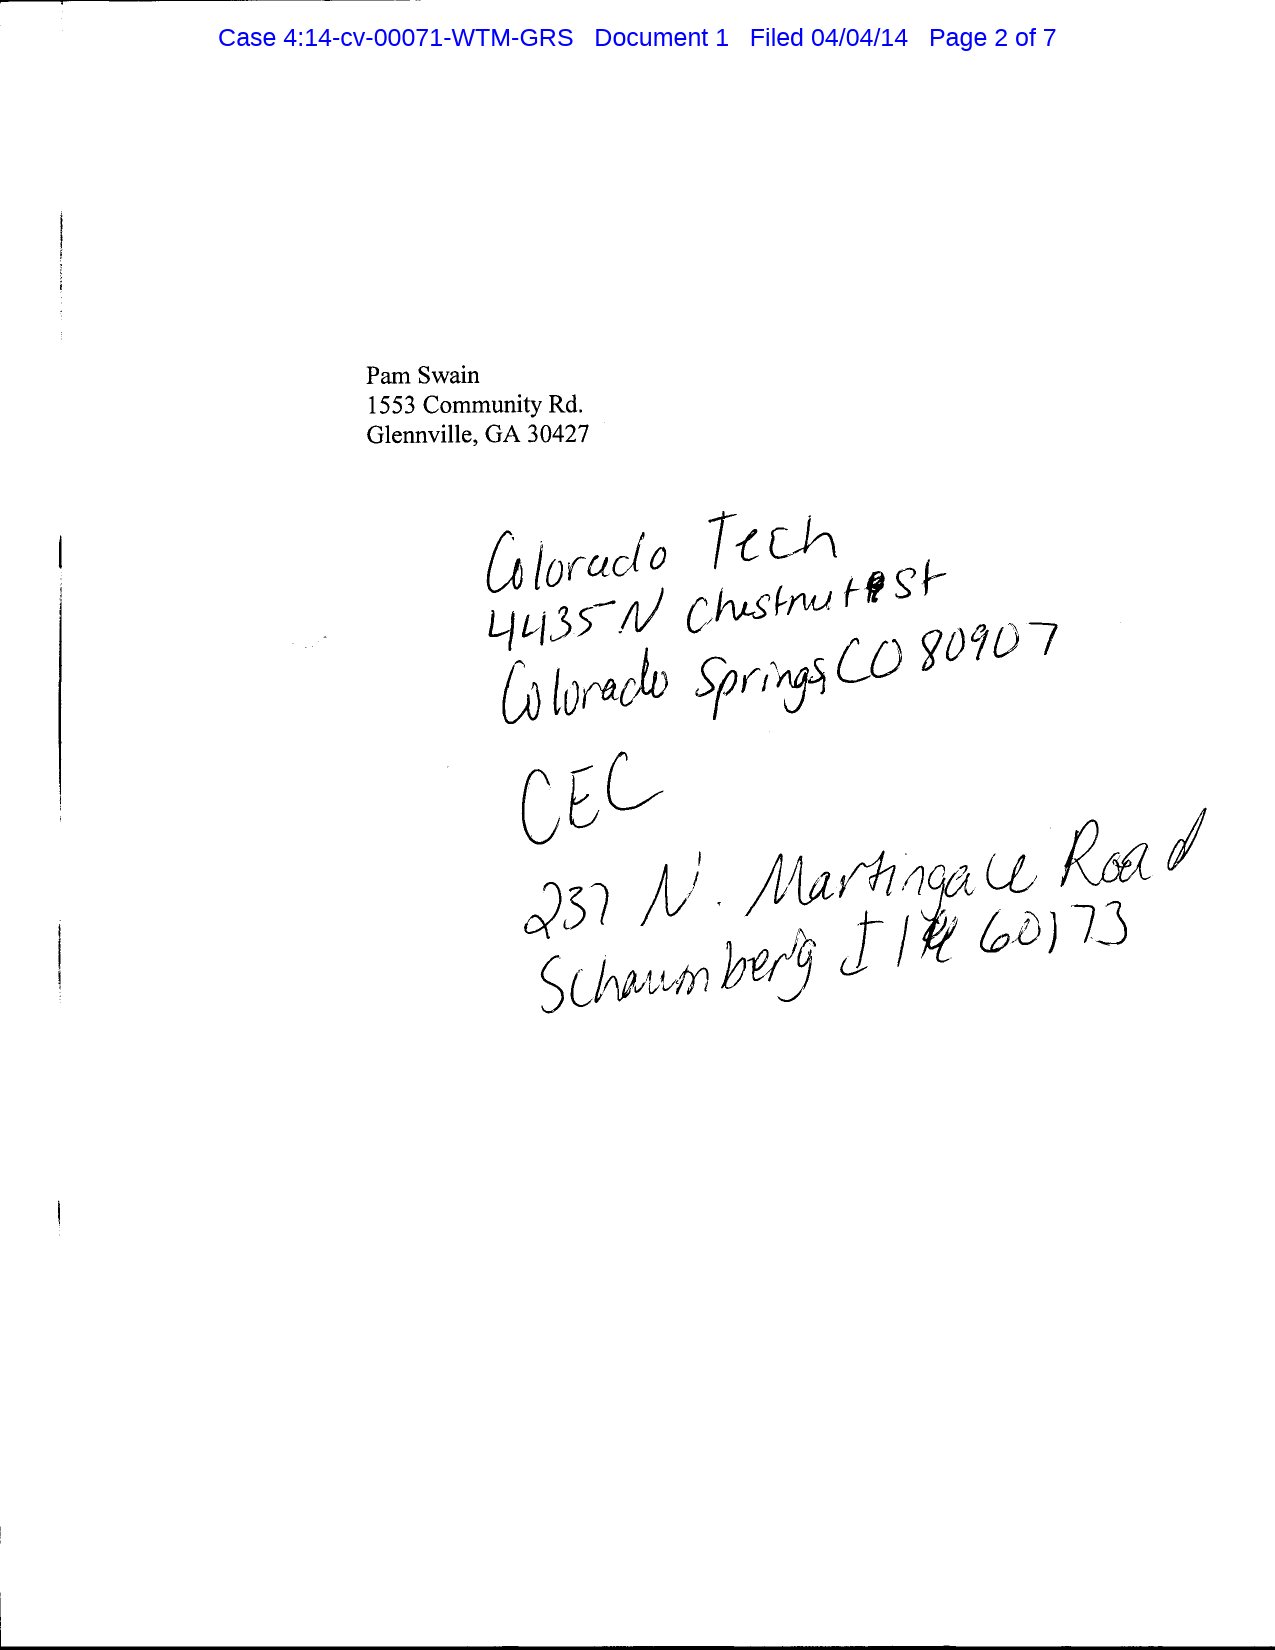 Case 4:14-cv-00071-WTM-GRS Document 1 Filed 04/04/14 Page 2 of 7
Pam Swain
1553 Community Rd.
Glennville, GA 30427
Colorado Tech
4435 N Chestnut St
Colorado Springs, CO 80907
CEC
237 N. Martingale Road
Schaumberg Il 60173